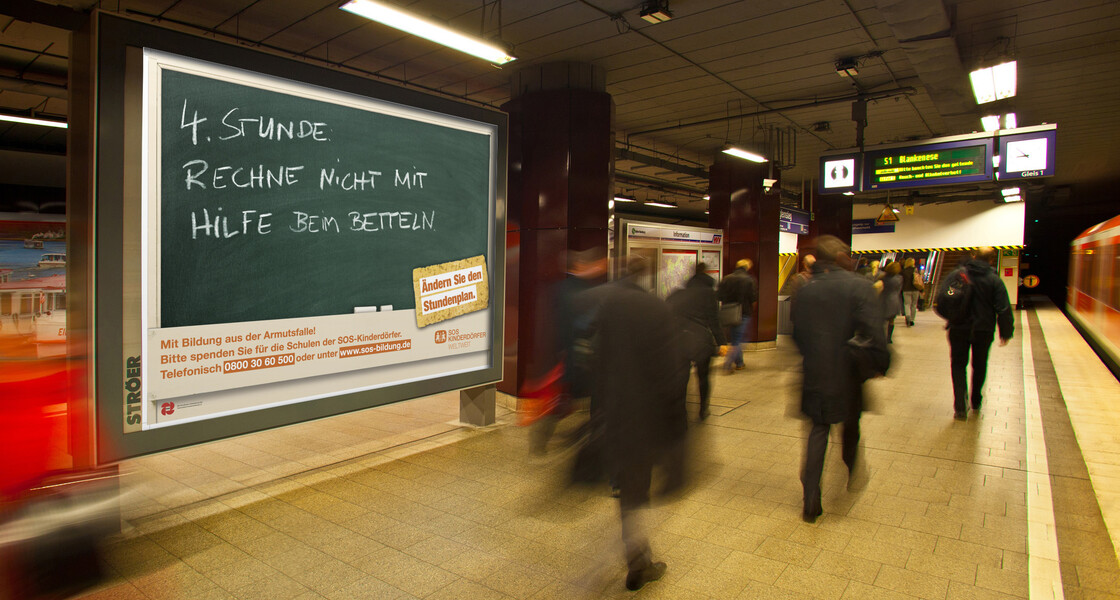 4. STUNDE:
RECHNE NICHT MIT
HILFE BEIM BETTELN.
Ändern Sie den
Stundenplan.
Mit Bildung aus der Armutsfalle!
Bitte spenden Sie für die Schulen der SOS-Kinderdörfer.
Telefonisch 0800 30 60 500 oder unter www.sos-bildung.de
SOS
KINDERDÖRFER
WELTWEIT
STRÖER
Information
S1 Blankenese
Gleis 1